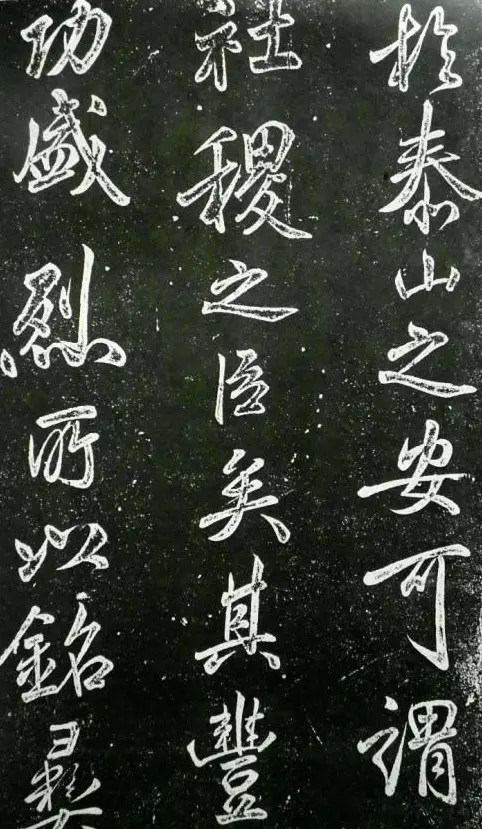 於泰山之安可謂
社稷之臣矣其豐
功盛烈所以銘彝